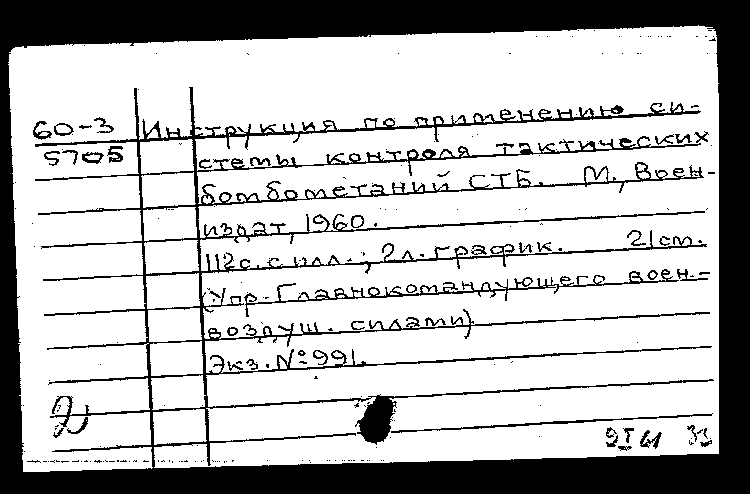 60-3
5705
Инструкция по применению си-
стемы контроля тактических
бомбометаний СТБ. М., Воен-
издат, 1960.
112с. с илл.; 2л. график. 21см.
(Упр. Главнокомандующего воен.-
воздуш. силами)
Экз. №991.
2
9 I 61